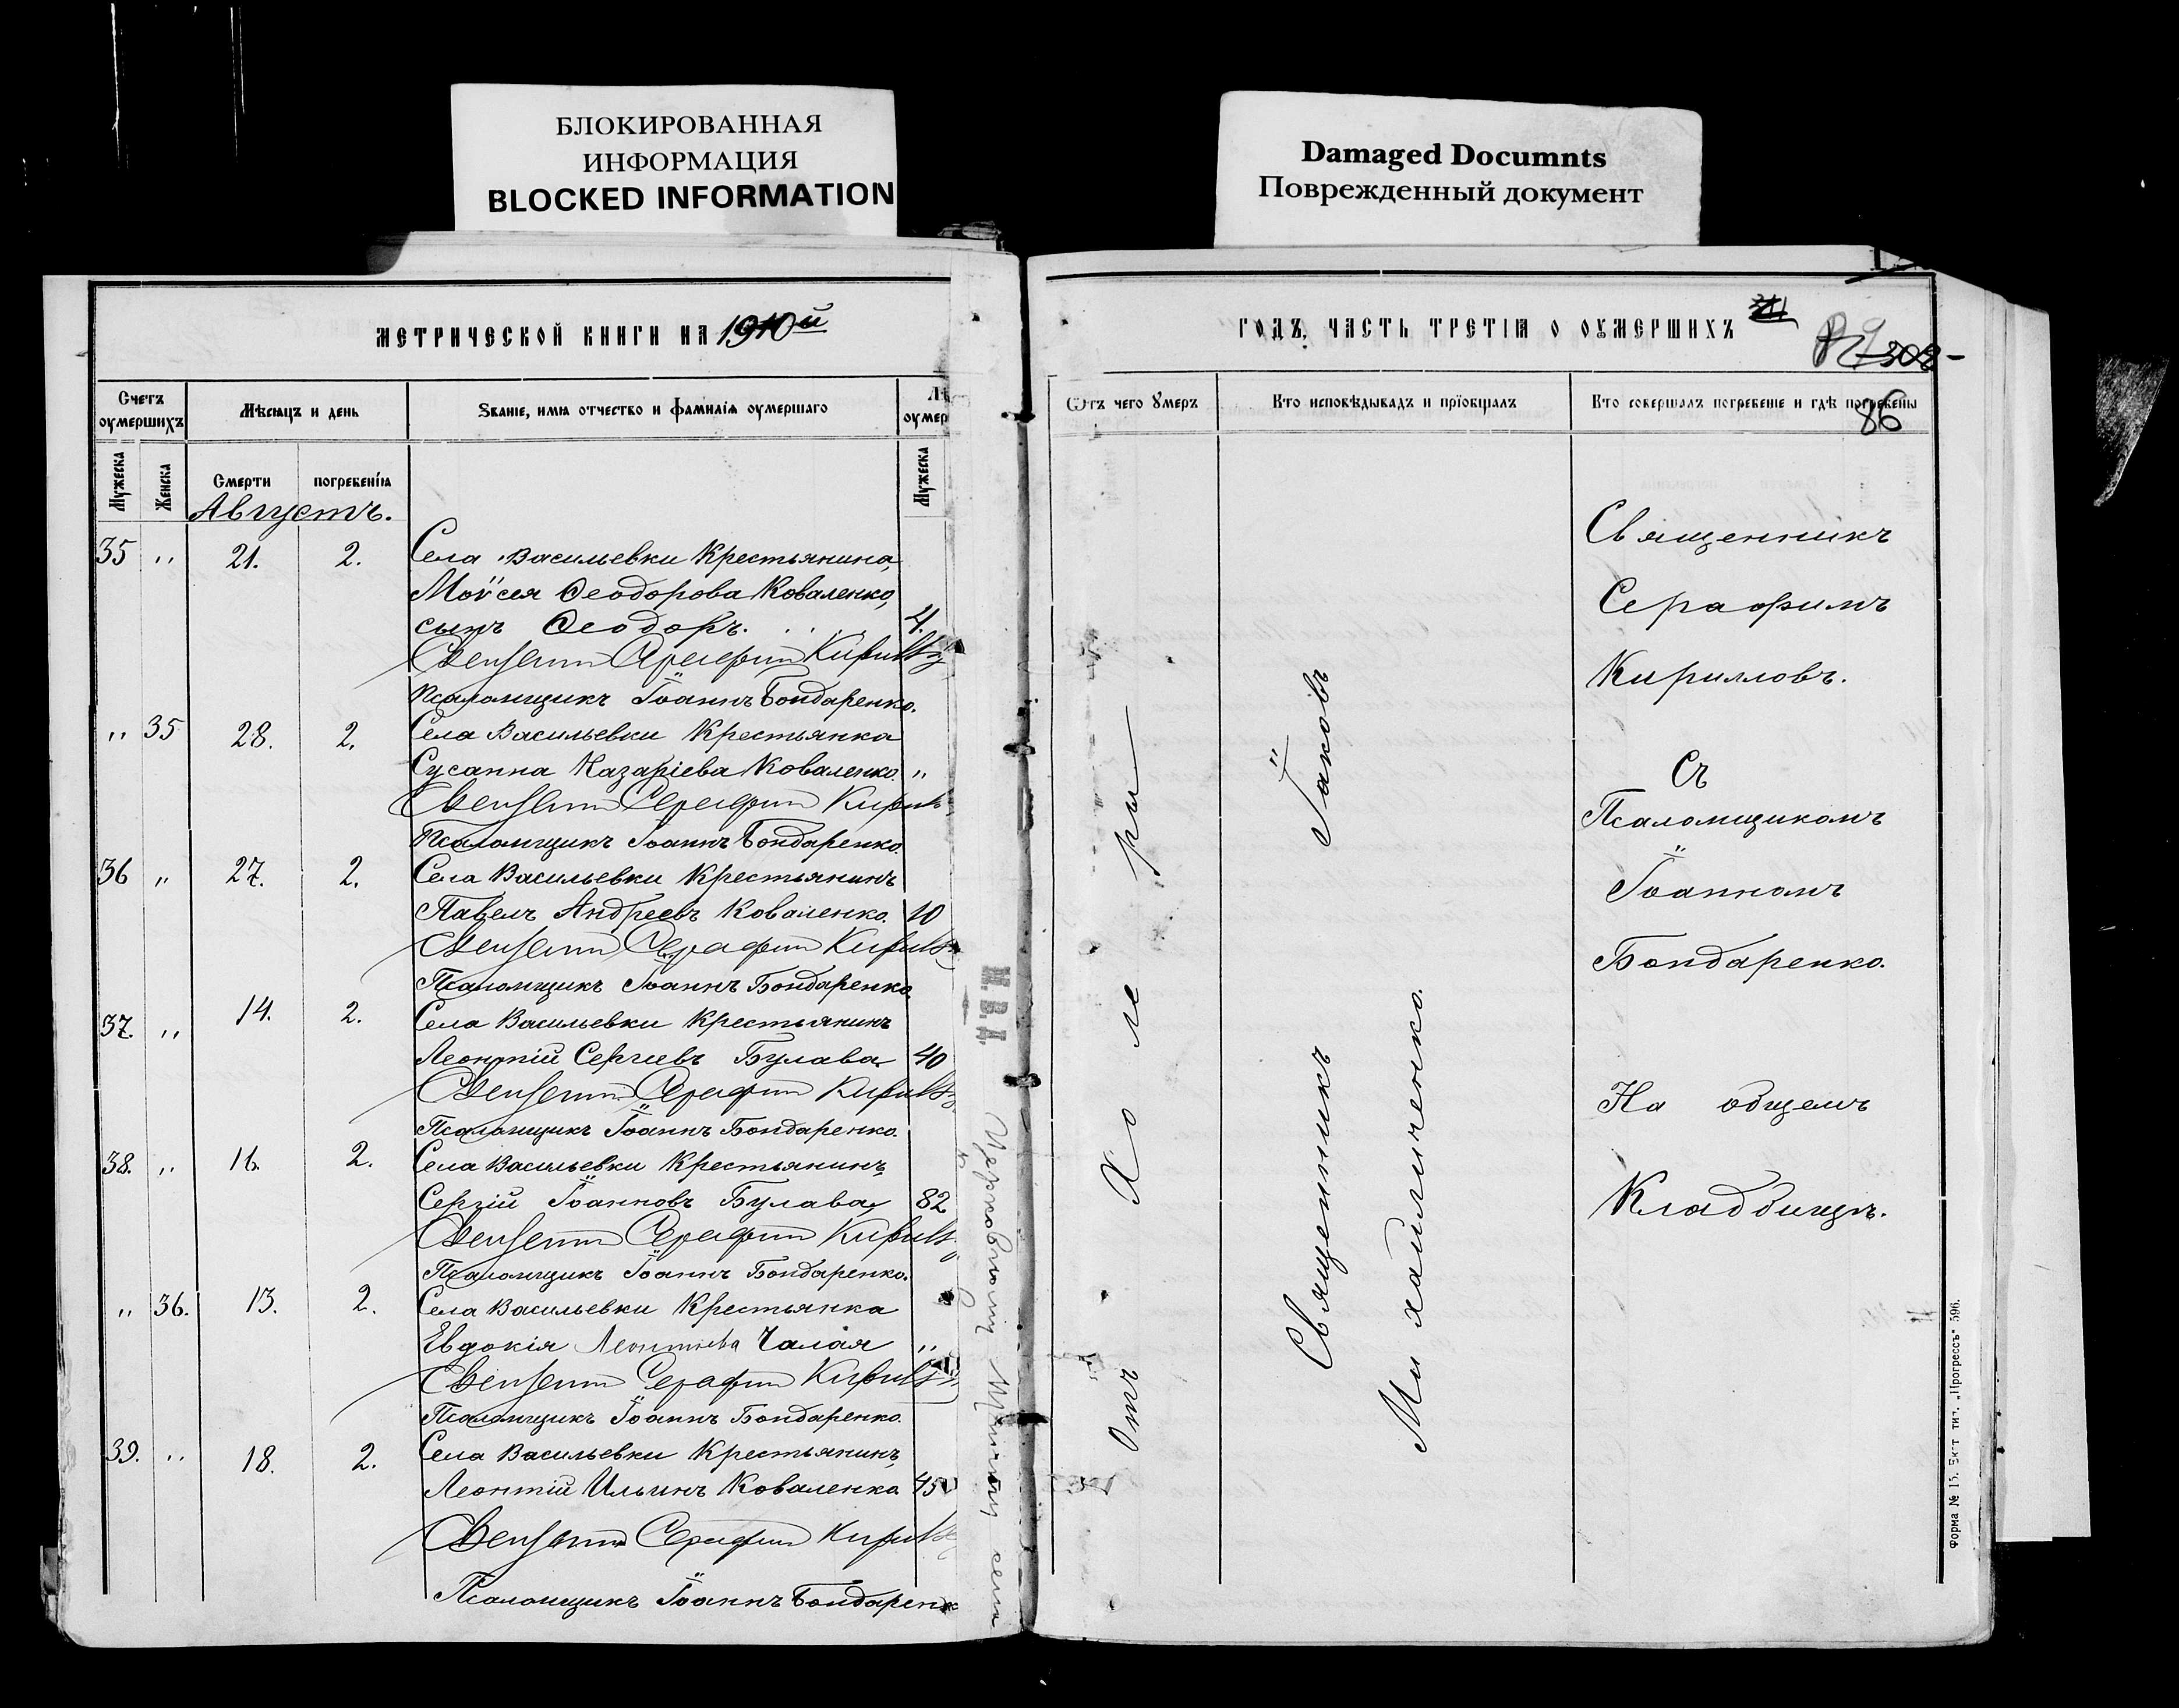 БЛОКИРОВАННАЯ
ИНФОРМАЦИЯ
BLOCKED INFORMATION
Damaged Documnts
Поврежденный документ
МЕТРИЧЕСКОЙ КНИГИ НА 1910й
Счетъ оумершихъ
Мѣсяцъ и день
Званіе, имя отчество и фамилія оумершаго
Мужеска
Женска
Смерти
погребенія
Мужеска
Августъ.
35 „ 21. 2. Села Васильевки Крестьянина,
Моѵсея Ѳеодорова Коваленко,
сынъ Ѳеодоръ. . . . 4.
Священникъ Серафимъ Кирилловъ
Псаломщикъ Іоаннъ Бондаренко.
„ 35 28. 2. Села Васильевки Крестьянка
Сусанна Назаріева Коваленко. „
Священникъ Серафимъ Кирилловъ
Псаломщикъ Іоаннъ Бондаренко.
36 „ 27. 2. Села Васильевки Крестьянинъ
Павелъ Андреевъ Коваленко. 10
Священникъ Серафимъ Кирилловъ
Псаломщикъ Іоаннъ Бондаренко.
37. „ 14. 2. Села Васильевки Крестьянинъ
Леонтій Сергіевъ Булава. 40
Священникъ Серафимъ Кирилловъ
Псаломщикъ Іоаннъ Бондаренко.
38. „ 16. 2. Села Васильевки Крестьянинъ,
Сергій Іоанновъ Булава, 82
Священникъ Серафимъ Кирилловъ
Псаломщикъ Іоаннъ Бондаренко.
„ 36. 13. 2. Села Васильевки Крестьянка
Евдокія Леонтьева Чалая „
Священникъ Серафимъ Кирилловъ
Псаломщикъ Іоаннъ Бондаренко.
39. „ 18. 2. Села Васильевки Крестьянинъ,
Леонтій Ильинъ Коваленко 45
Священникъ Серафимъ Кирилловъ
Псаломщикъ Іоаннъ Бондаренк
М.В.Д.
ГОДЪ, ЧАСТЬ ТРЕТІЯ О ОУМЕРШИХЪ
86
Отъ чего умеръ
Кто исповѣдывалъ и пріобщалъ
Кто совершалъ погребеніе и гдѣ погребены
Отъ Холеры
Священникъ Іаковъ
Михайличенко.
Священникъ
Серафимъ
Кирилловъ.
Съ
Псаломщикомъ
Іоанномъ
Бондаренко.
На общемъ
Кладбищѣ.
Форма № 15. Ек-т тип. „Прогрессъ" 596.